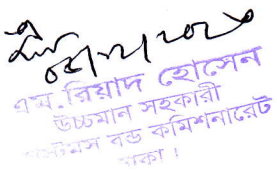 ০৮/১২/২০২০
এম. রিয়াদ হোসেন
উচ্চমান সহকারী
কাস্টমস বন্ড কমিশনারেট
ঢাকা।